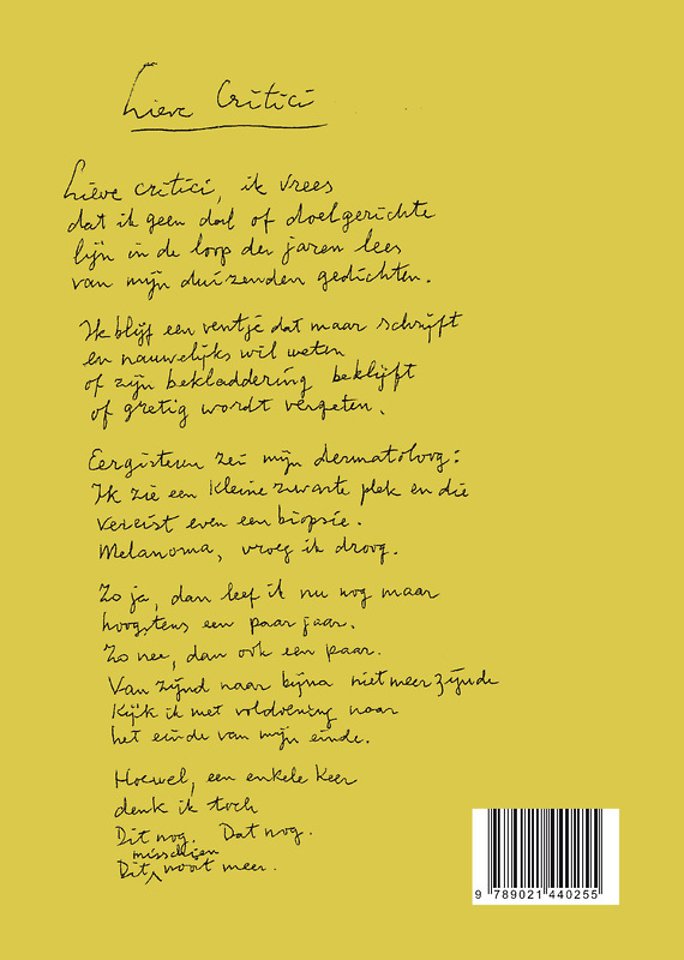 Lieve Critici
Lieve critici, ik vrees
dat ik geen doel of doelgerichte
lijn in de loop der jaren lees
van mijn duizenden gedichten.
Ik blijf een ventje dat maar schrijft
en nauwelijks wil weten
of zijn bekladdering beklijft
of gretig wordt vergeten.
Eergisteren zei mijn dermatoloog:
Ik zie een kleine zwarte plek en die
vereist even een biopsie.
Melanoma, vroeg ik droog.
Zo ja, dan leef ik nu nog maar
hoogstens een paar jaar.
Zo nee, dan ook een paar.
Van zijnd naar bijna niet meer zijnde
Kijk ik met voldoening naar
het einde van mijn einde.
Hoewel, een enkele keer
denk ik toch
Dit nog. Dat nog.
misschien
Dit nooit meer.
9 789021 440255